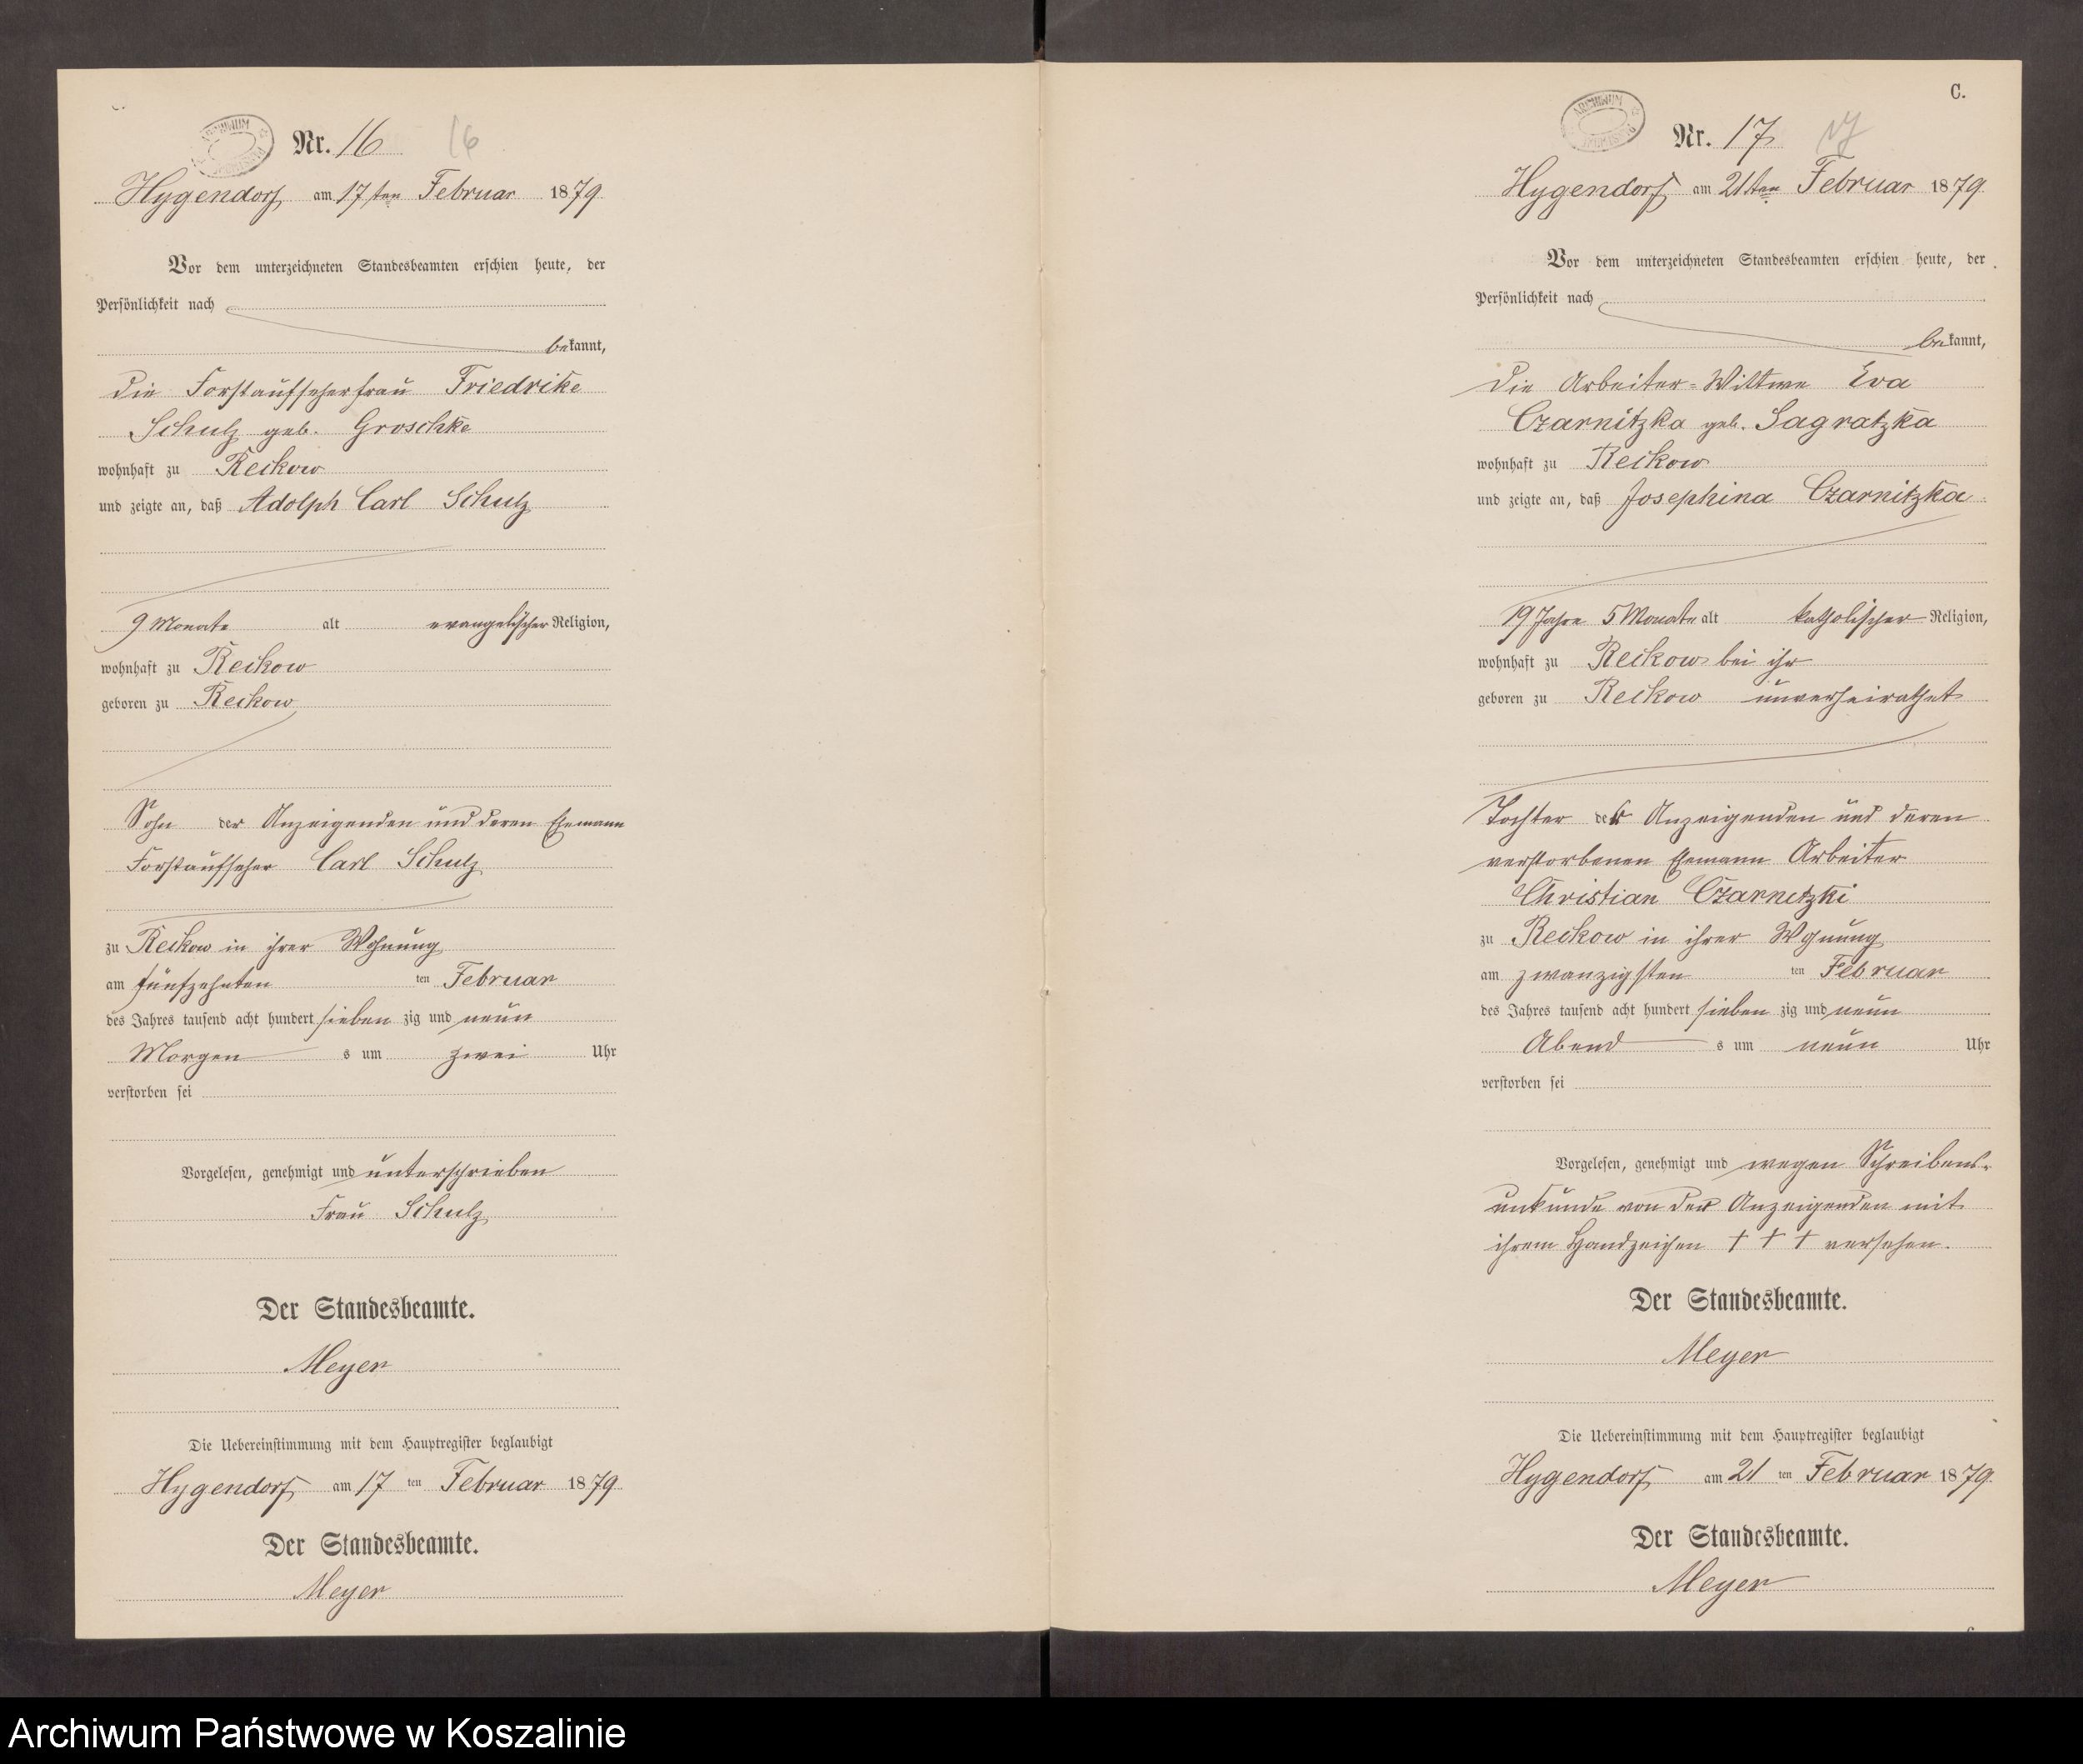 Nr. 16 16
Hygendorf am 17ten Februar 1879
Vor dem unterzeichneten Standesbeamten erschien heute, der
Persönlichkeit nach
bekannt,
die Forstaufseherfrau Friedrike
Schulz geb. Groschke
wohnhaft zu Reckow
und zeigte an, daß Adolph Carl Schulz
9 Monate alt evangelischer Religion,
wohnhaft zu Reckow
geboren zu Reckow
Sohn der Anzeigenden und deren Ehemann
Forstaufseher Carl Schulz
zu Reckow in ihrer Wohnung
am fünfzehnten ten Februar
des Jahres tausend acht hundert sieben zig und neun
Morgen s um zwei Uhr
verstorben sei
Vorgelesen, genehmigt und unterschrieben
Frau Schulz
Der Standesbeamte.
Meyer
Die Uebereinstimmung mit dem Hauptregister beglaubigt
Hygendorf am 17 ten Februar 1879
Der Standesbeamte.
Meyer
C.
ARCHIWUM
Nr. 17 17
Hygendorf am 21ten Februar 1879
Vor dem unterzeichneten Standesbeamten erschien heute, der
Persönlichkeit nach
bekannt,
die Arbeiter-Wittwe Eva
Czarnitzka geb. Sagratzka
wohnhaft zu Reckow
und zeigte an, daß Josephina Czarnitzka
19 Jahre 5 Monate alt katholischer Religion,
wohnhaft zu Reckow bei ihr
geboren zu Reckow unverheirathet
Tochter der Anzeigenden und deren
verstorbenen Ehemann Arbeiter
Christian Czarnetzki
zu Reckow in ihrer Wonung
am zwanzigsten ten Februar
des Jahres tausend acht hundert sieben zig und neun
Abend s um neun Uhr
verstorben sei
Vorgelesen, genehmigt und wegen Schreibens-
unkunde von der Anzeigenden mit
ihrem Handzeichen + + + versehen.
Der Standesbeamte.
Meyer
Die Uebereinstimmung mit dem Hauptregister beglaubigt
Hygendorf am 21 ten Februar 1879
Der Standesbeamte.
Meyer
Archiwum Państwowe w Koszalinie